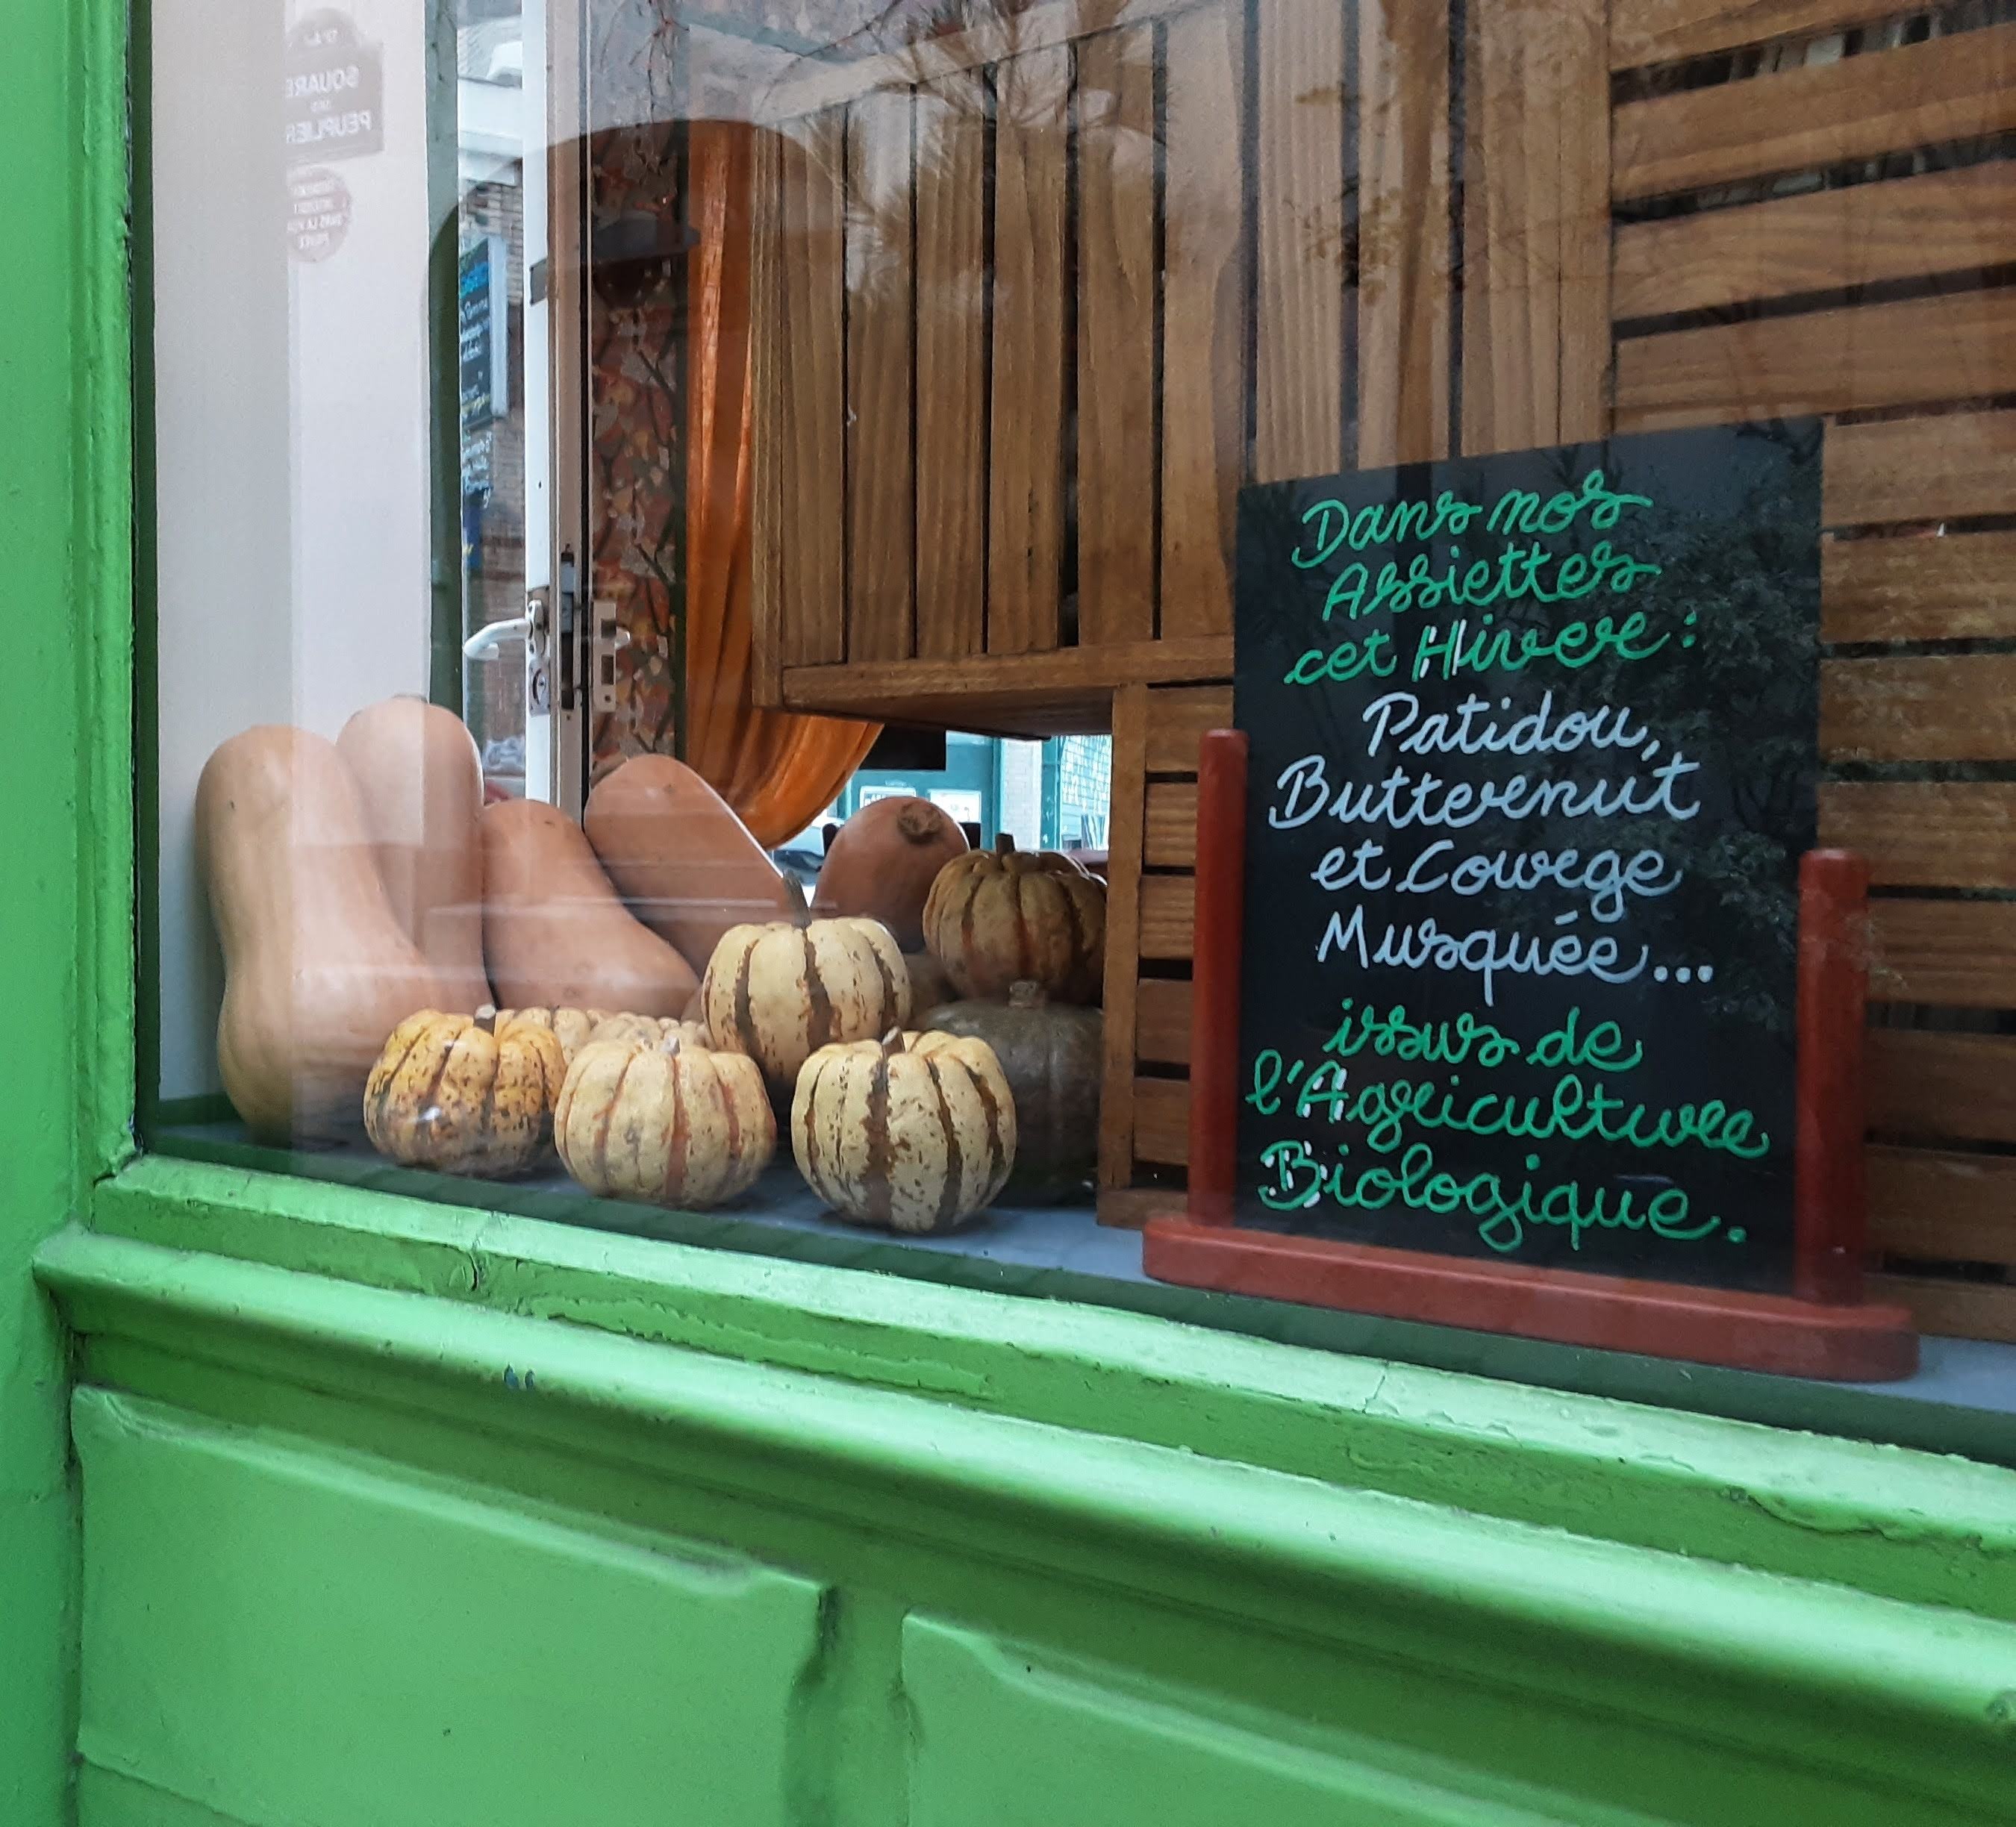 SQUARE
DES
PEUPLIER
Dans nos
Assiettes
cet Hiver :
Patidou,
Butternut
et Courge
Musquée...
issus de
l'Agriculture
Biologique.